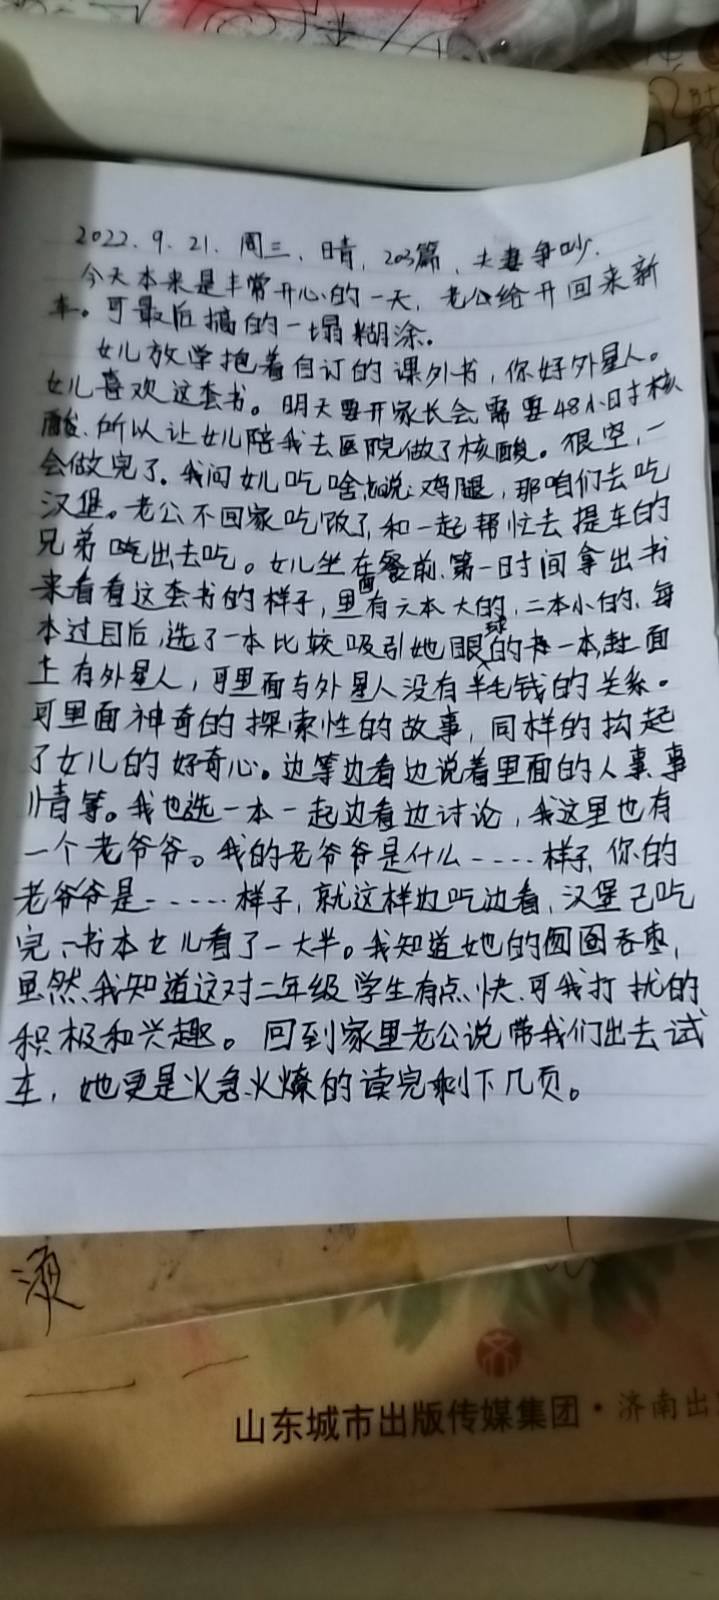 2022.9.21.周三,晴,203篇,夫妻争吵.
今天本来是非常开心的一天,老公给开回来新
车。可最后搞的一塌糊涂。
女儿放学抱着自订的课外书,你好外星人。
女儿喜欢这套书。明天要开家长会,需要48小时核
酸.所以让女儿陪我去医院做了核酸。很空,一
会做完了.我问女儿吃啥,她说:鸡腿,那咱们去吃
汉堡。老公不回家吃饭了,和一起帮忙去提车的
兄弟出去吃。女儿坐在餐前.第一时间拿出书
来看看这套书的样子,里面有六本大的,二本小的.每
本过目后,选了一本比较吸引她眼球的一本,面
上有外星人,可里面与外星人没有半毛钱的关系。
可里面神奇的探索性的故事,同样的构起
了女儿的好奇心。边等边看边说着里面的人事.事
情等。我也选一本一起边看边讨论,我这里也有
一个老爷爷。我的老爷爷是什么.....样子,你的
老爷爷是......样子,就这样边吃边看,汉堡已吃
完,书本女儿看了一大半。我知道她的囫囵吞枣,
虽然.我知道这对二年级学生有点快.可我打扰的
积极和兴趣。回到家里老公说带我们出去试
车,她更是火急火燎的读完剩下几页。
山东城市出版传媒集团·济南出